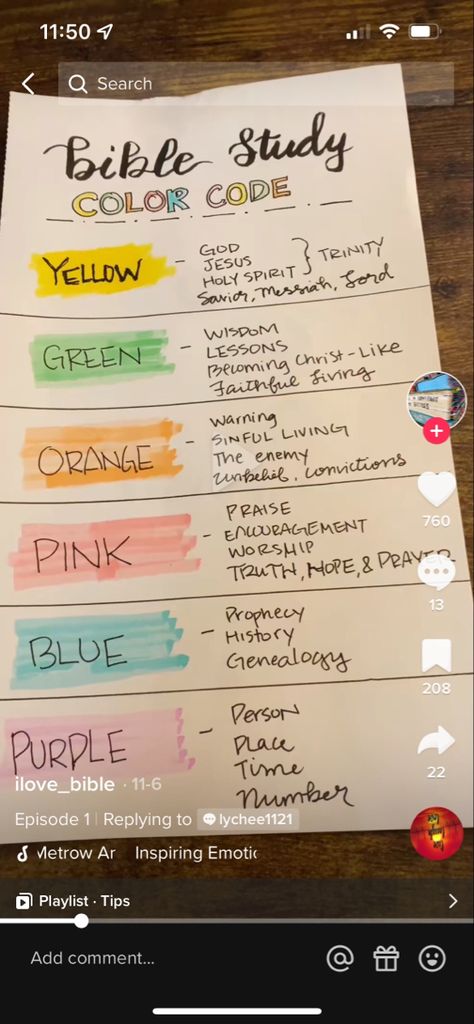 11:50
Search
Bible Study
COLOR CODE
YELLOW - GOD
JESUS
HOLY SPIRIT } TRINITY
Savior, Messiah, Lord
GREEN - WISDOM
LESSONS
Becoming Christ-Like
Faithful Living
ORANGE - Warning
SINFUL LIVING
The enemy
Unbelief, Convictions
PINK - PRAISE
ENCOURAGEMENT
WORSHIP
TRUTH, HOPE, & PRAYER
BLUE - Prophecy
History
Genealogy
PURPLE - Person
Place
Time
Number
760
13
208
22
ilove_bible · 11-6
Episode 1 | Replying to lychee1121
Metrow Ar Inspiring Emotic
Playlist · Tips
Add comment...